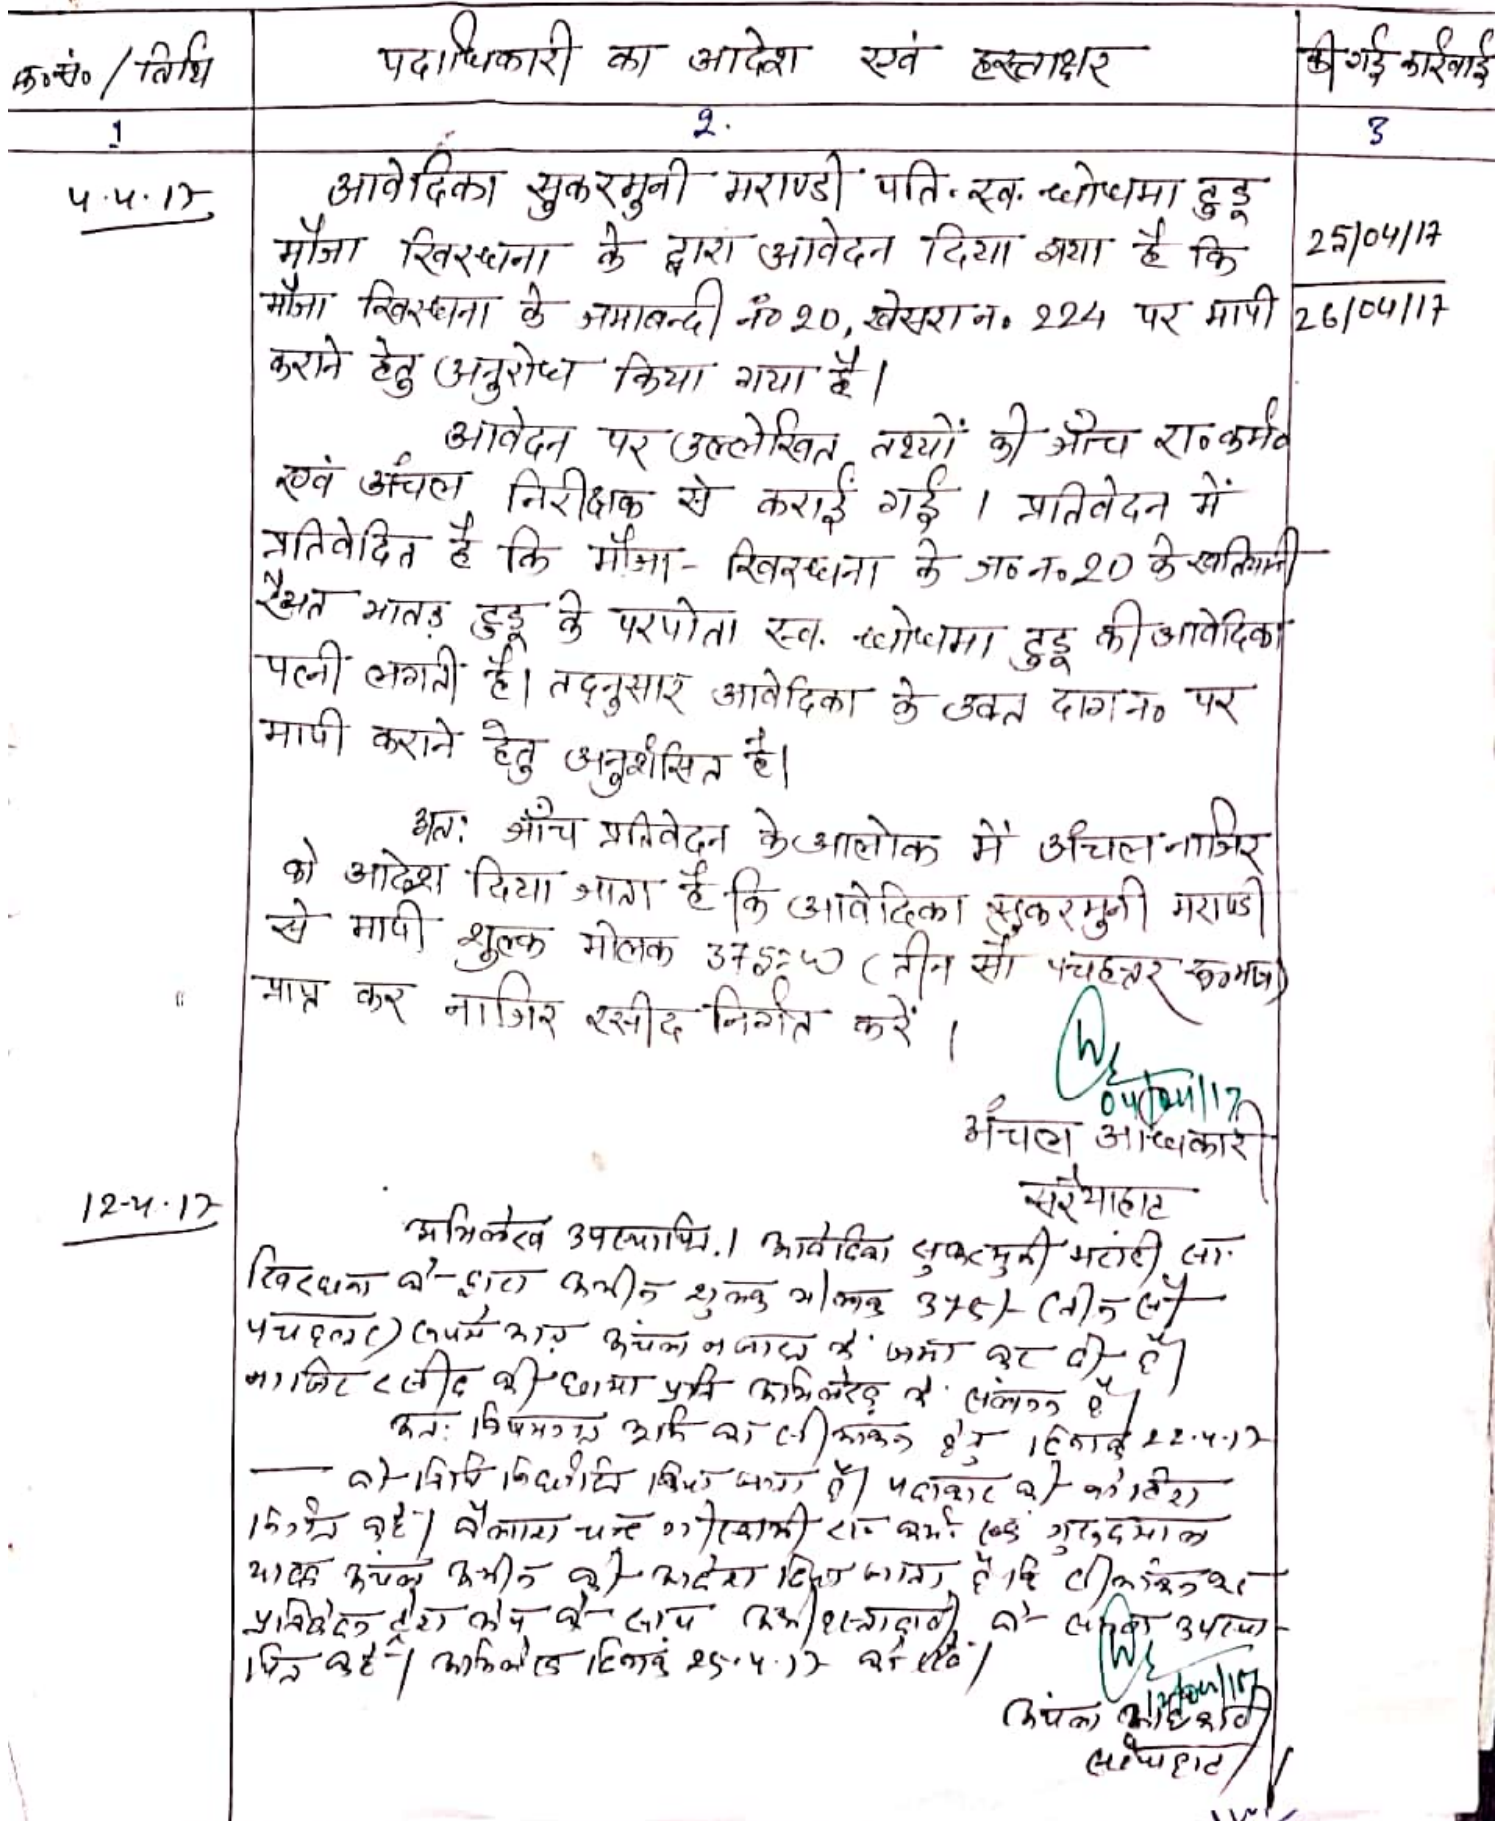 क्र०सं० / तिथि
पदाधिकारी का आदेश एवं हस्ताक्षर
की गई कार्रवाई
1
2.
3
4.4.17
आवेदिका सुकरमुनी मराण्डी पति. स्व. धोधमा टुडू
मौजा खिरधना के द्वारा आवेदन दिया गया है कि
25/04/17
मौजा खिरधना के जमाबन्दी नं० 20, खेसरा न० 224 पर मापी
26/04/17
कराने हेतु अनुरोध किया गया है।
आवेदन पर उल्लेखित तथ्यों की जाँच रा० कर्म०
एवं अंचल निरीक्षक से कराई गई। प्रतिवेदन में
प्रतिवेदित है कि मौजा - खिरधना के ज० न० 20 के खतियानी
रैयत भातड़ टुडू के परपोता स्व. धोधमा टुडू की आवेदिका
पत्नी लगती है। तद्नुसार आवेदिका के उक्त दाग न० पर
मापी कराने हेतु अनुशंसित है।
अतः जाँच प्रतिवेदन के आलोक में अंचल नाजिर
को आदेश दिया जाता है कि आवेदिका सुकरमुनी मराण्डी
से मापी शुल्क मोलक (तीन सौ पचहत्तर रू० मात्र)
प्राप्त कर नाजिर रसीद निर्गत करें।
04/04/17
अंचल अधिकारी
सरैयाहाट
12-4-17
अभिलेख उपस्थापित। आवेदिका सुकरमुनी मरांडी सा.
खिरधना के द्वारा अमीन शुल्क मोलक 375/- (तीन सौ
पचहत्तर) रूपये मात्र अंचल नजारत में जमा कर दी है।
नाजिर रसीद की छाया प्रति अभिलेख में संलग्न है।
अतः का सीमांकन हेतु दिनांक 22.4.17
को तिथि निर्धारित किया जाता है। को नोटिस
निर्गत करें। कैलाश चन्द्र गोस्वामी रा० कर्म० एवं गुरुदयाल
यादव अंचल अमीन को आदेश दिया जाता है कि सीमांकन कर
प्रतिवेदन के साथ को उपस्था-
पित करें। अभिलेख दिनांक 25.4.17 को रखें।
12/04/17
अंचल अधिकारी
सरैयाहाट